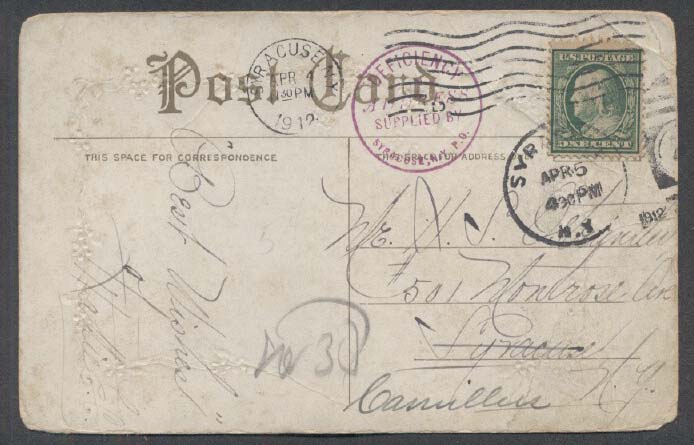 Post Card
SYRACUSE N.Y.
APR 4
30 PM
1912
DEFICIENCY
IN ADDRESS
SUPPLIED BY
SYRACUSE, N.Y. P.O.
U.S. POSTAGE
ONE CENT
SYR
APR 5
4 30 PM
N.Y.
1912
THIS SPACE FOR CORRESPONDENCE
THIS SPACE FOR ADDRESS ON
Best Wishes
Mr. H. S.
501 Montrose Av
Syracuse
Camillus N.Y.